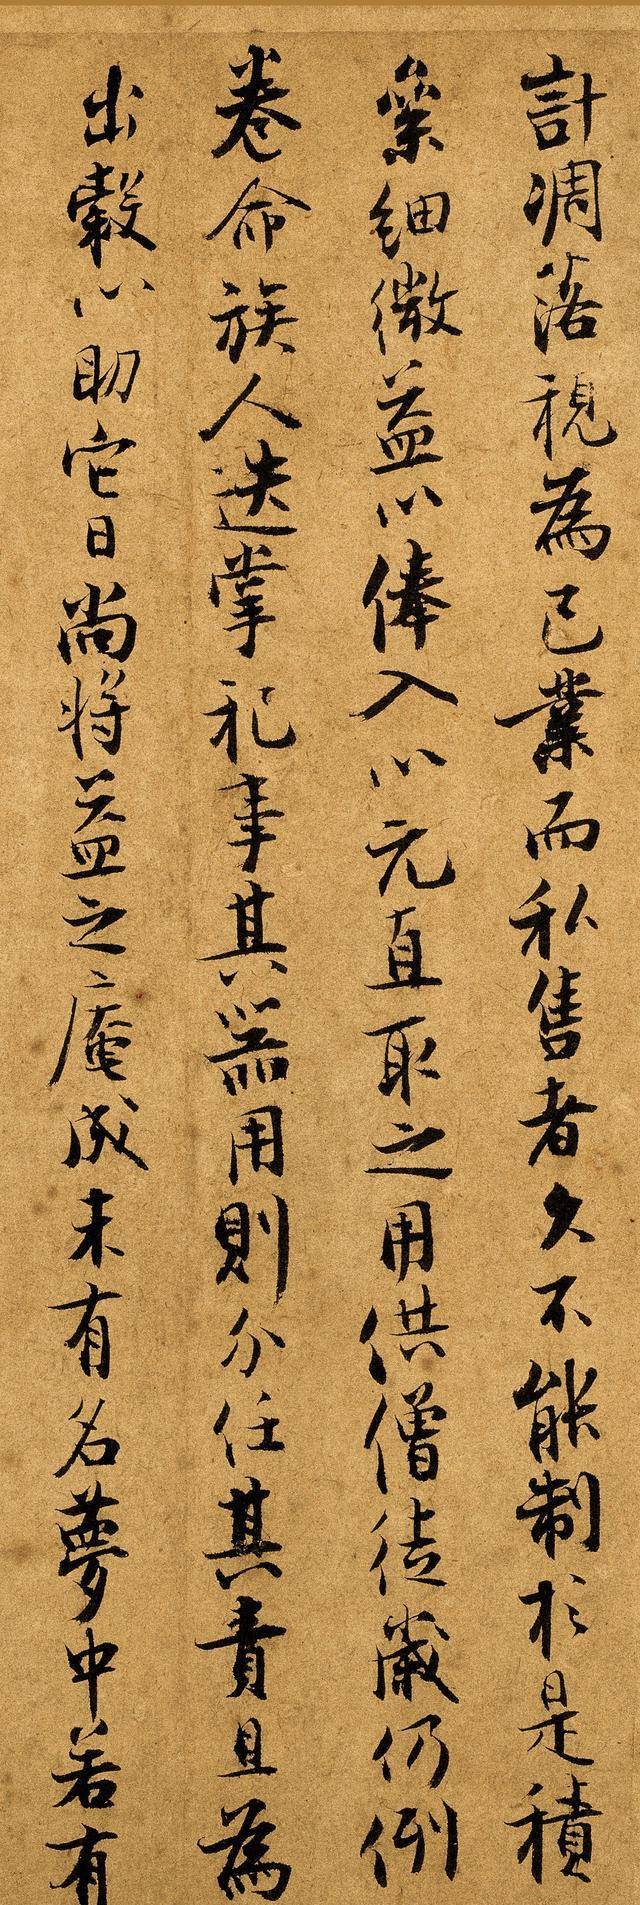 計凋落視為己業而私售者久不能制於是積
絫細微益以俸入以元直取之用供僧徒歲仍例
卷命族人迭掌祀事其器用則分任其責且為
出穀以助它日尚將益之庵成未有名夢中若有